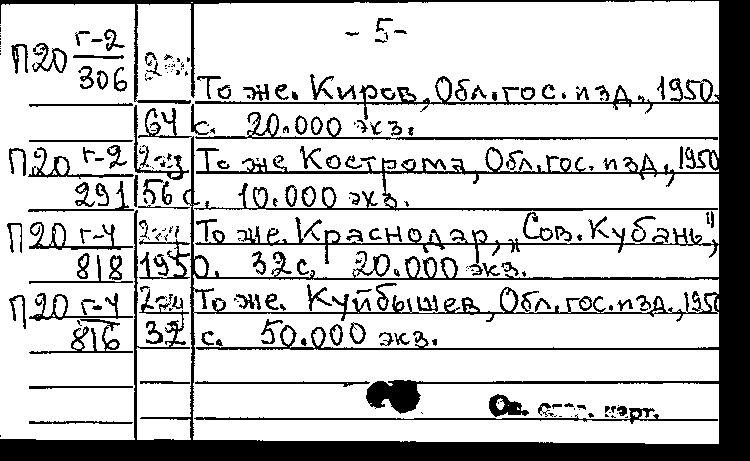 - 5 -
П20 г-2/306 2эк
То же. Киров, Обл.гос.изд., 1950.
64 с. 20.000 экз.
П20 г-2/291 2эк То же. Кострома, Обл.гос.изд., 1950
56 с. 10.000 экз.
П20 г-4/818 То же. Краснодар, „Сов.Кубань",
1950. 32с. 20.000 экз.
П20 г-4/816 То же. Куйбышев, Обл.гос.изд., 1950
32 с. 50.000 экз.
карт.